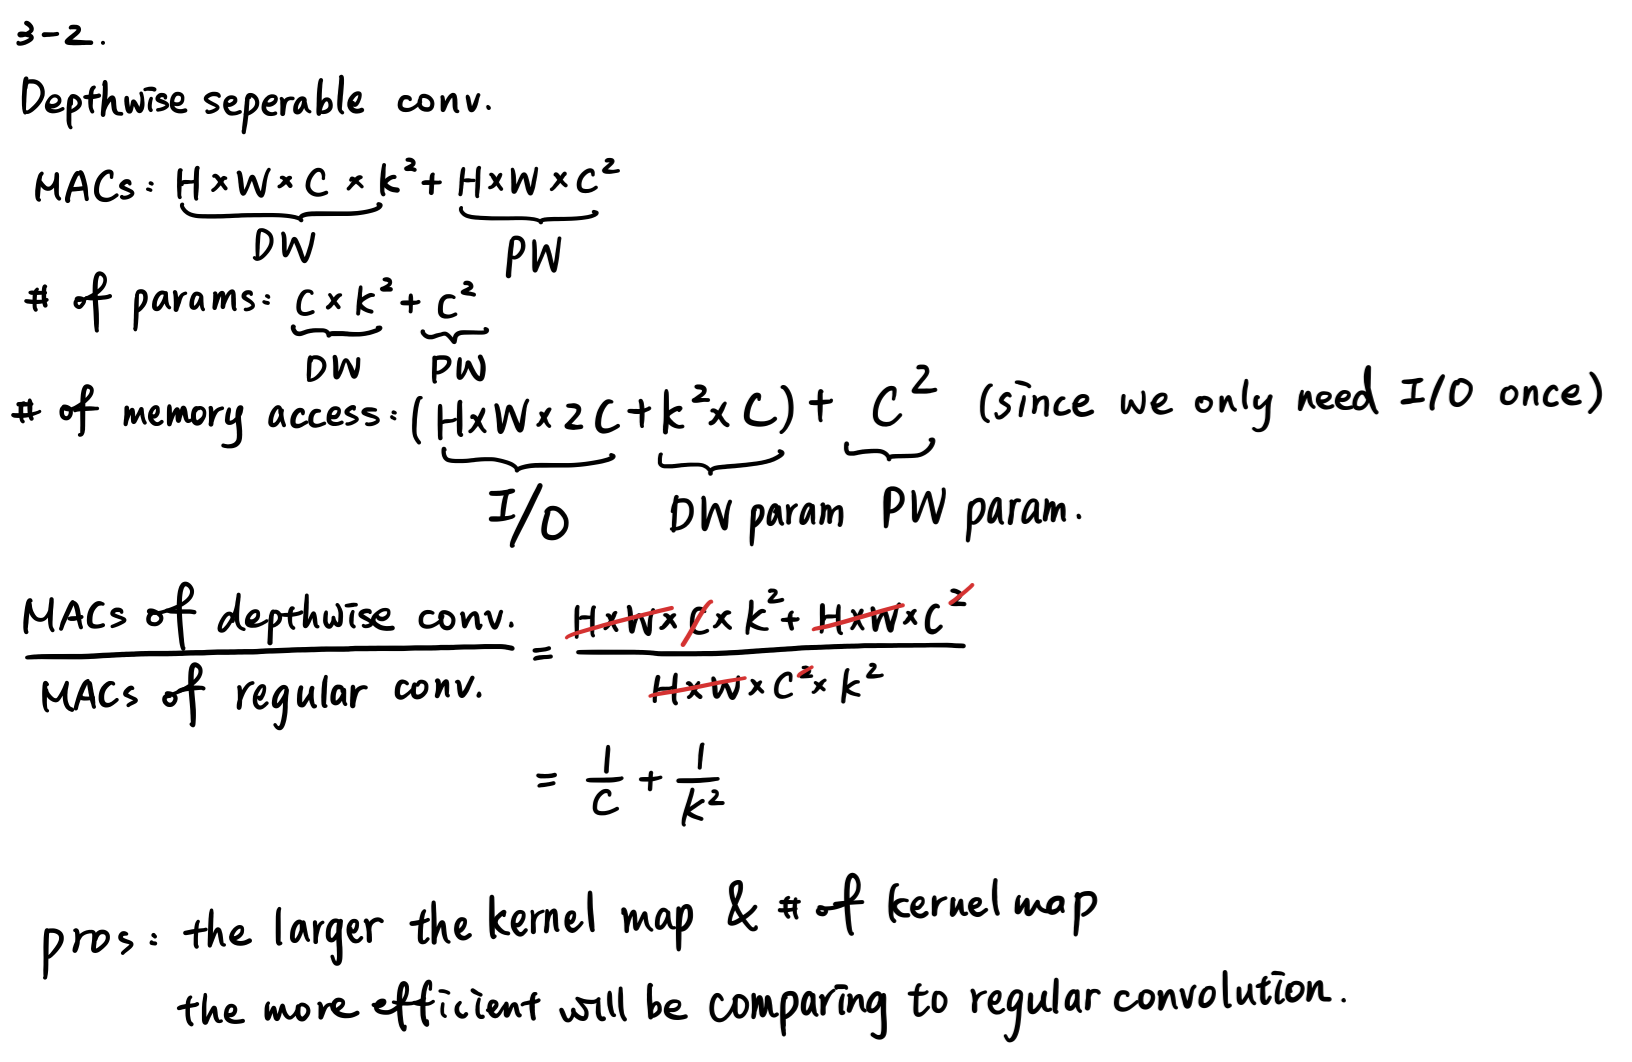 3-2.
Depthwise seperable conv.
MACs: H×W×C×k²+H×W×C²
DW PW
# of params: C×k²+C²
DW PW
# of memory access: (H×W×2C+k²×C)+C² (since we only need I/O once)
I/O DW param PW param.
MACs of depthwise conv. / MACs of regular conv. = H×W×C×k²+H×W×C² / H×W×C²×k²
= 1/C + 1/k²
pros: the larger the kernel map & # of kernel map
the more efficient will be comparing to regular convolution.